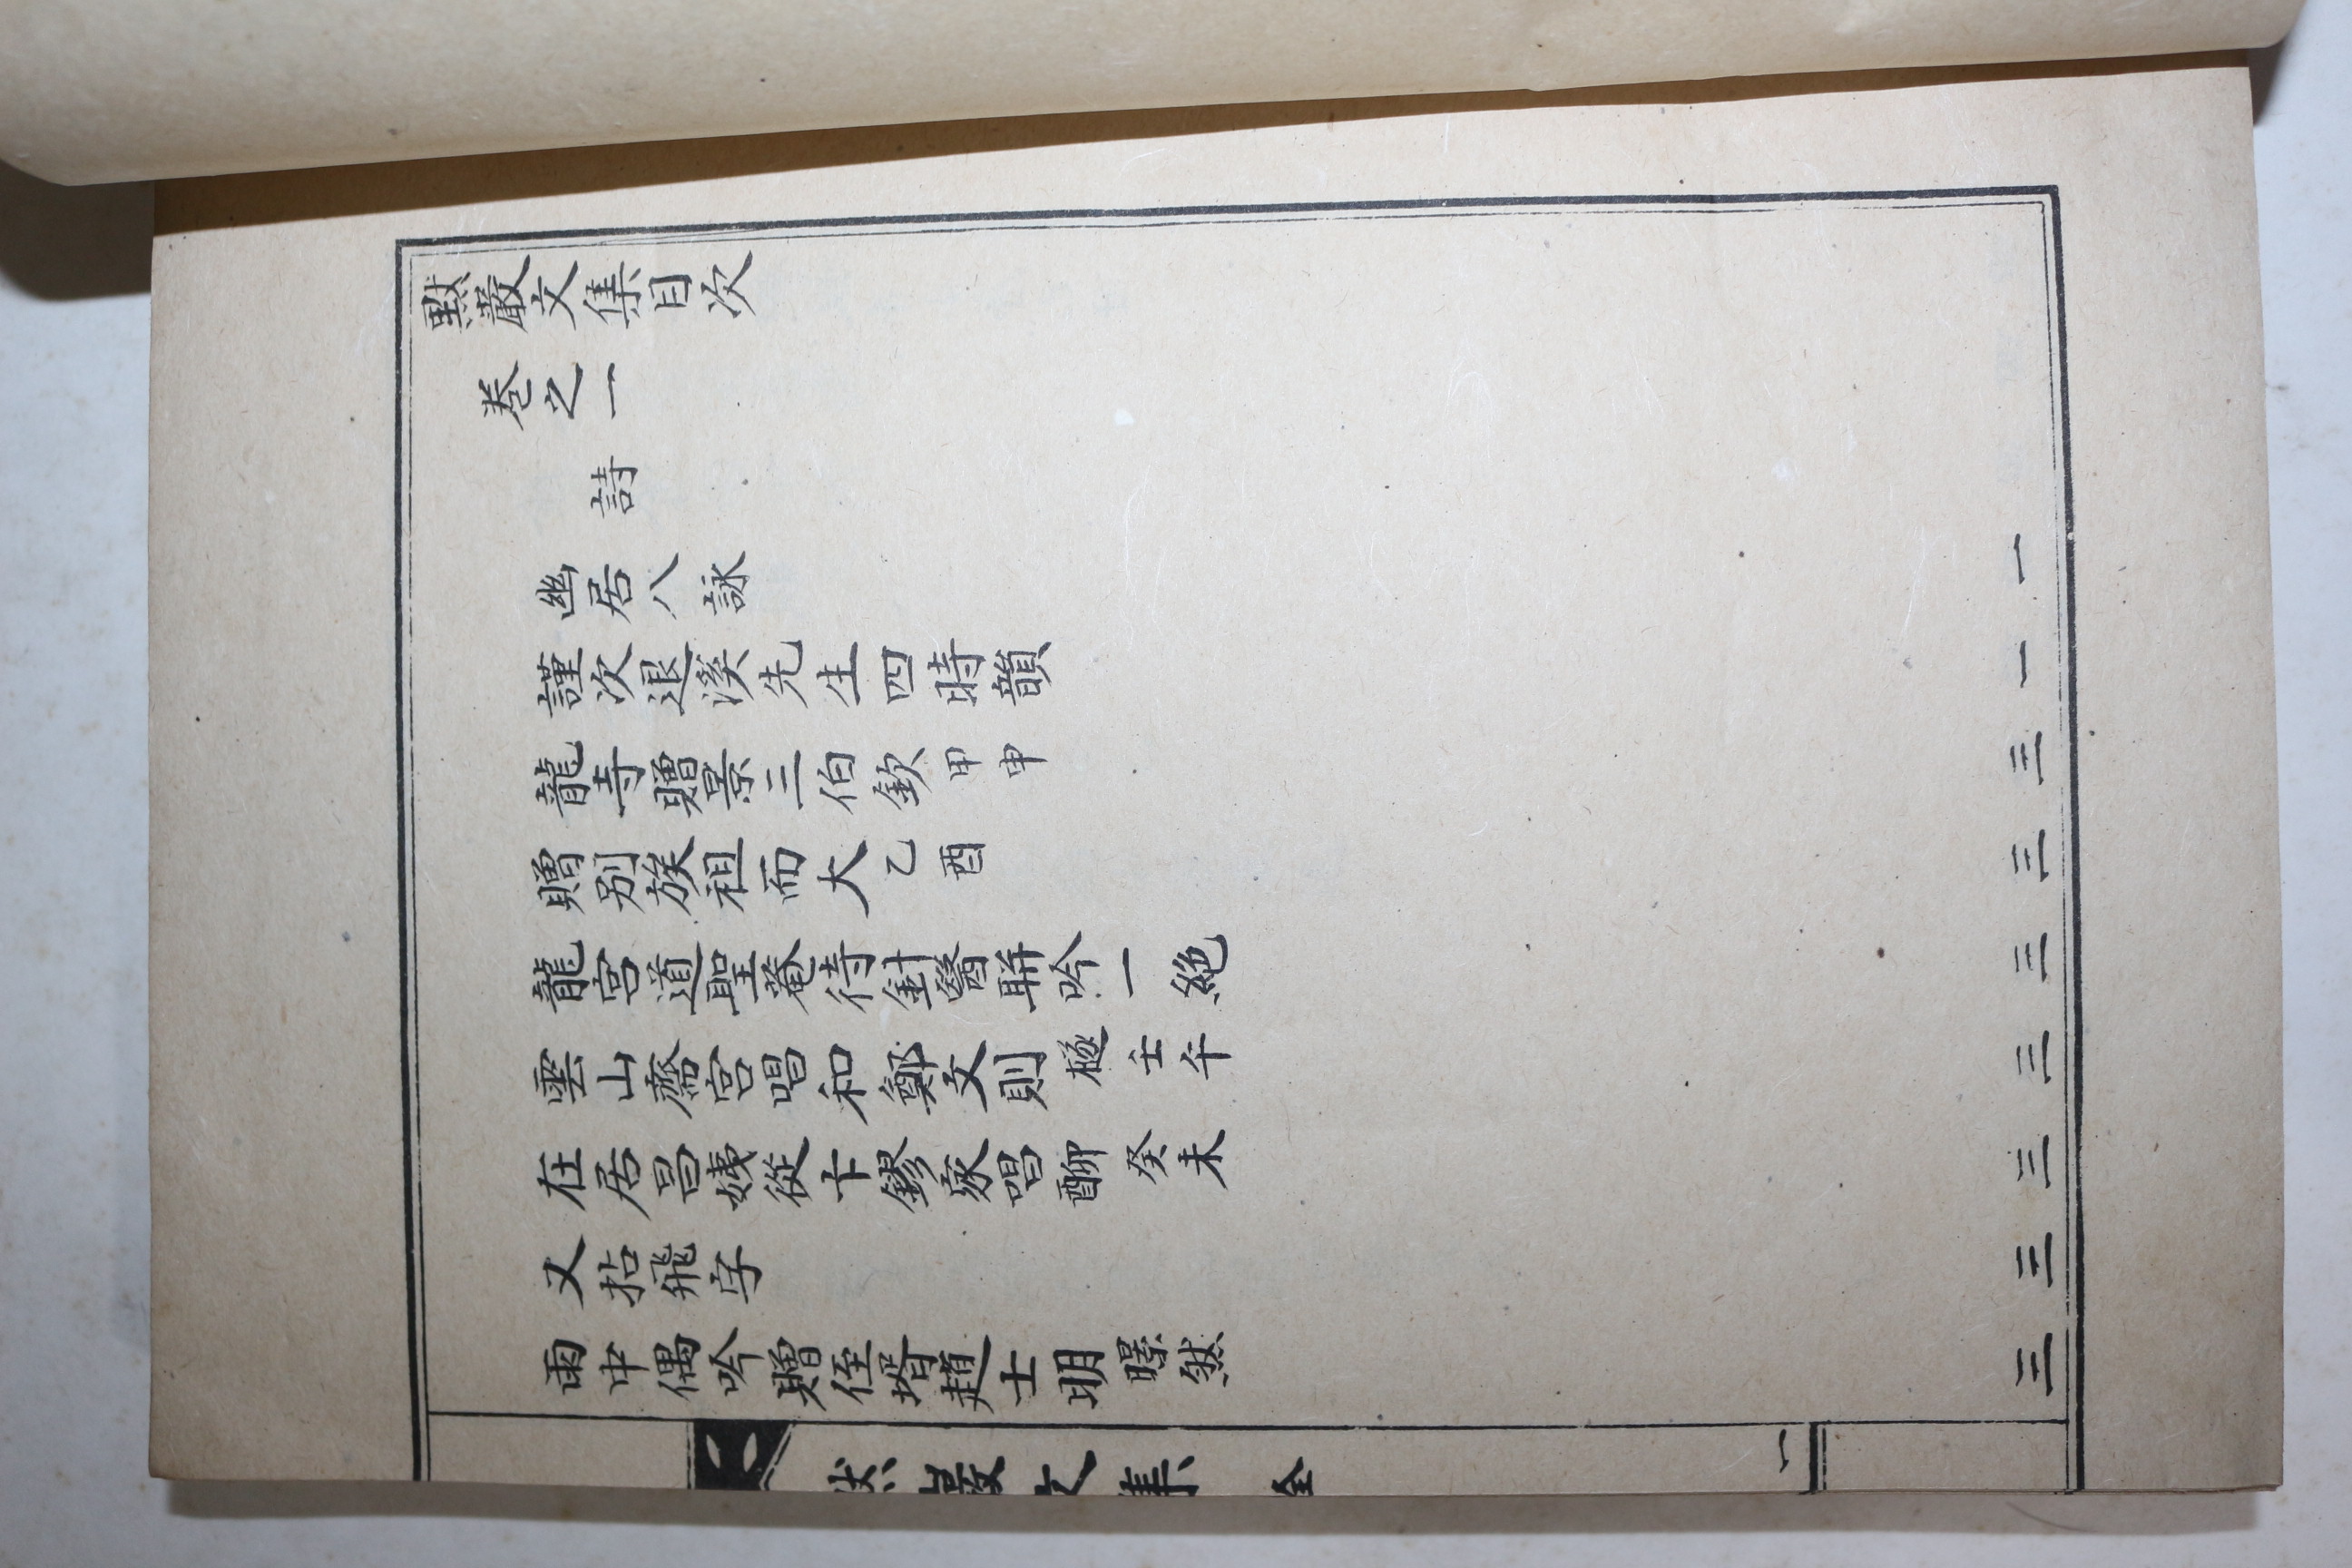 默巖文集目次
卷之一
詩
幽居八詠 一
謹次退溪先生四時韻 一
龍寺贈景三伯欽 甲申 三
贈別族祖而大 乙酉 三
龍宮道聖菴待針醫聯吟一絕 三
雲山齋宮唱和鄭文則 樾 壬午 三
在居昌姨從卞鏐家唱酬 癸未 三
又拈飛字 三
雨中偶吟贈侄壻趙士明 暻然 三
默巖文集 全
一